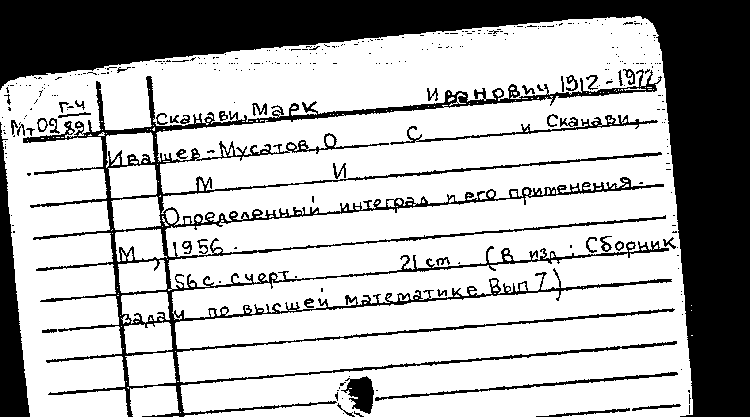 Г-4
Мт 09 891 Сканави, Марк Иванович, 1912-1972
Ивашев-Мусатов, О С и Сканави,
М И
Определенный интеграл и его применения.
М., 1956.
56 с. с черт. 21 cm. (В изд.: Сборник
задач по высшей математике. Вып 7.)